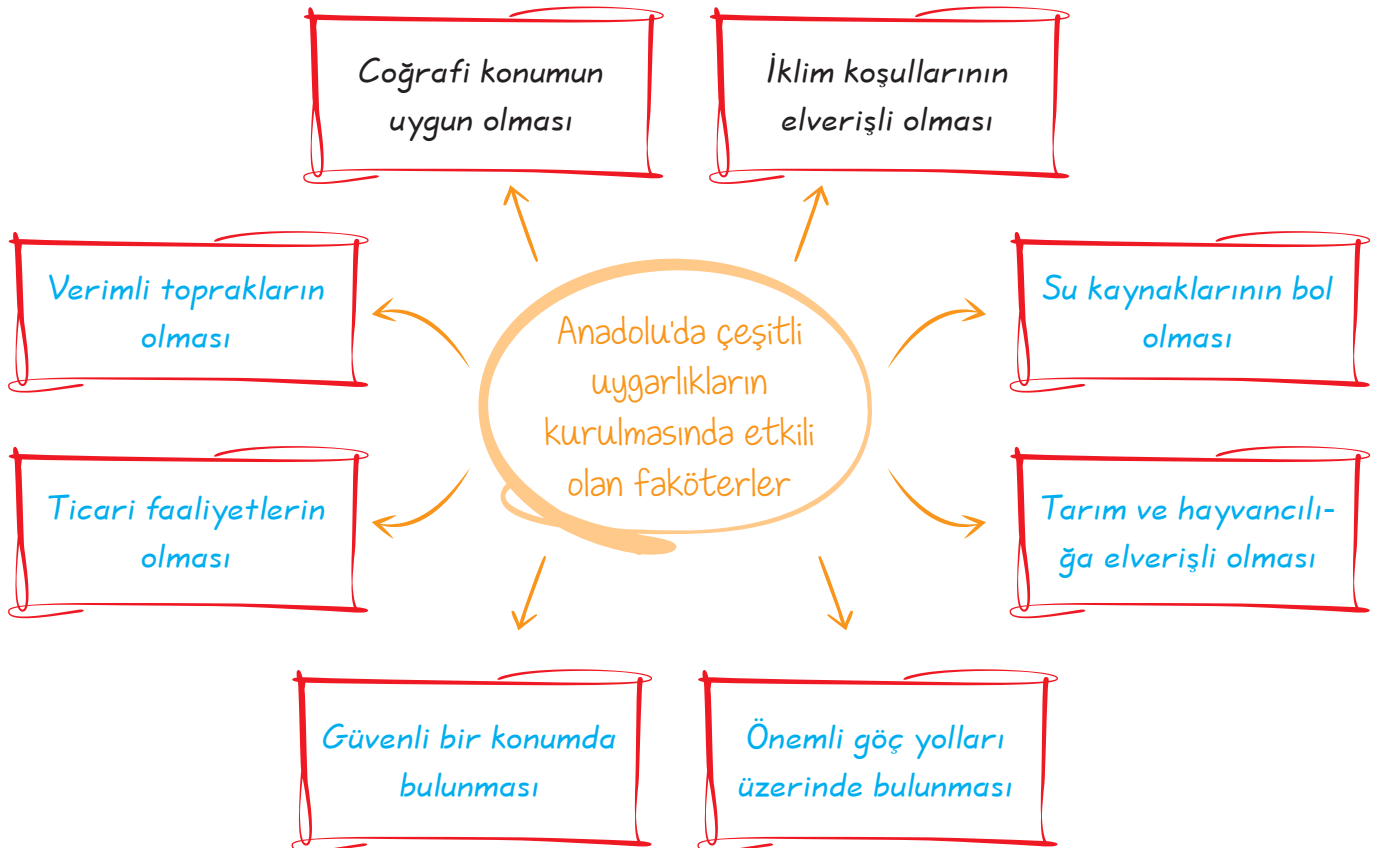 Coğrafi konumun
uygun olması
İklim koşullarının
elverişli olması
Verimli toprakların
olması
Su kaynaklarının bol
olması
Anadolu'da çeşitli
uygarlıkların
kurulmasında etkili
olan faköterler
Ticari faaliyetlerin
olması
Tarım ve hayvancılı-
ğa elverişli olması
Güvenli bir konumda
bulunması
Önemli göç yolları
üzerinde bulunması